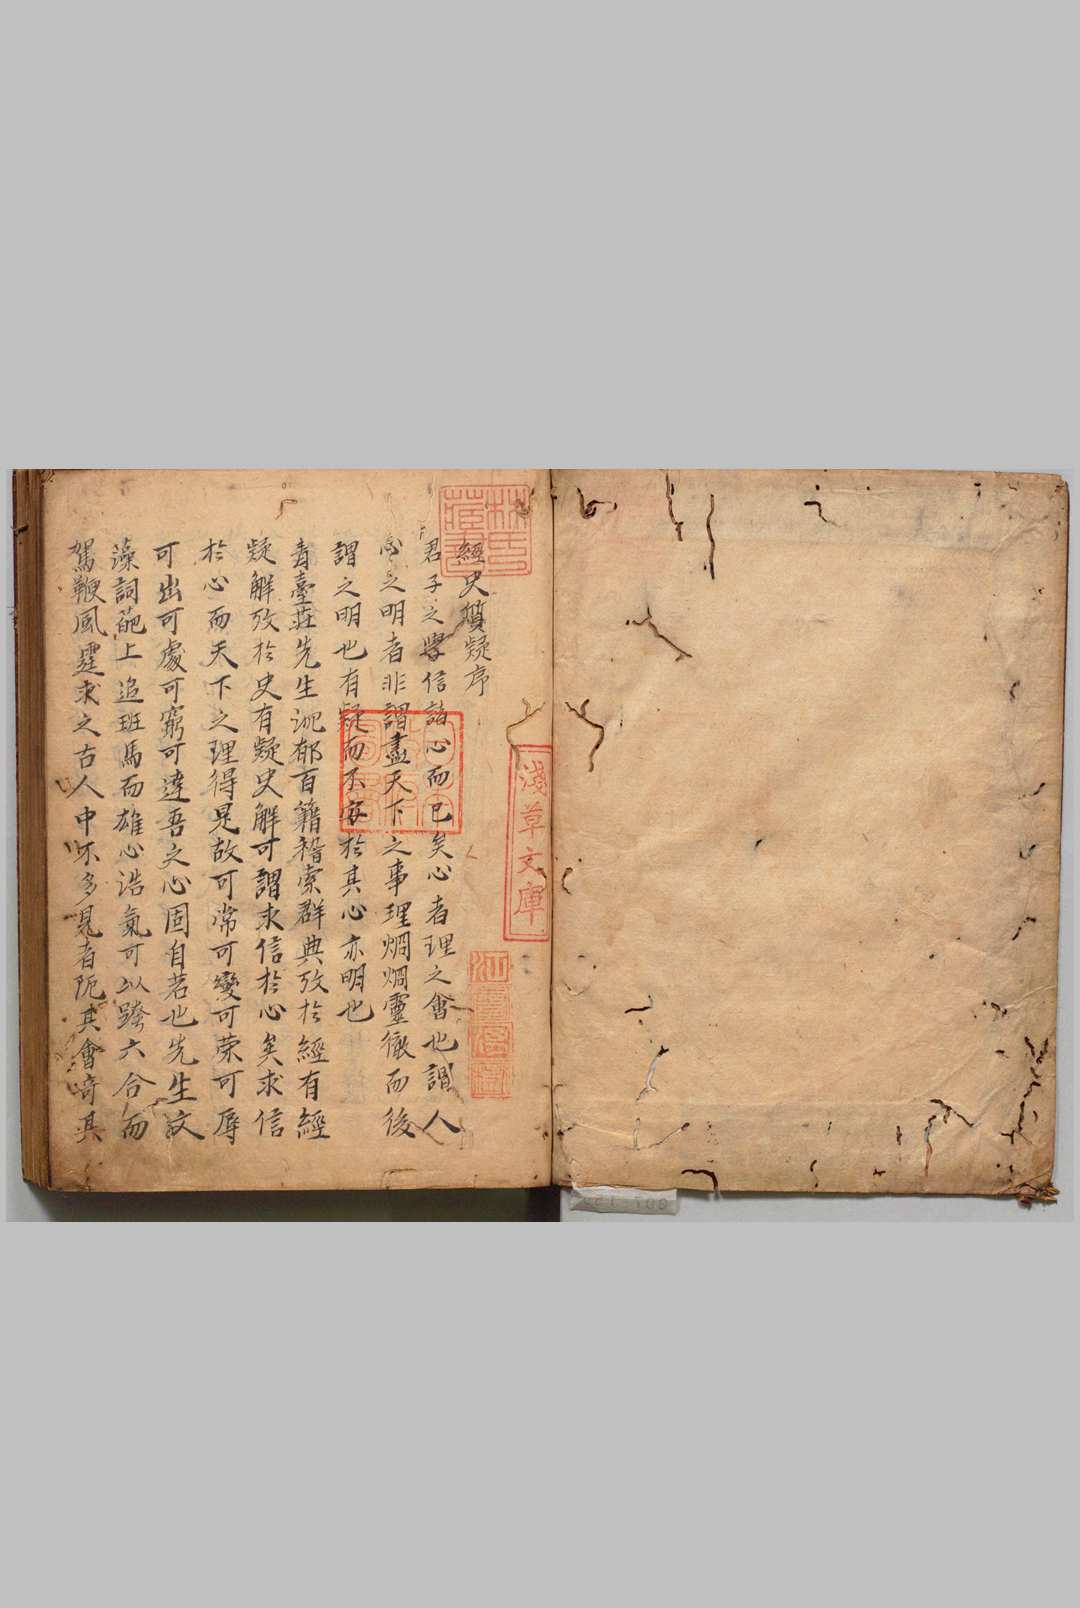 經史質疑序
君子之學信諸心而已矣心者理之會也謂人
心之明者非謂盡天下之事理烱烱靈徹而後
謂之明也有疑而不安於其心亦明也
青臺莊先生沉郁百籍稽索群典攷於經有經
疑解攷於史有疑史解可謂求信於心矣求信
於心而天下之理得是故可常可變可荣可辱
可出可處可窮可達吾之心固自若也先生文
藻詞葩上追班馬而雄心浩氣可以跨六合而
駕鞭風霆求之古人中不多見者阨其會奇其
林氏藏書
淺草文庫